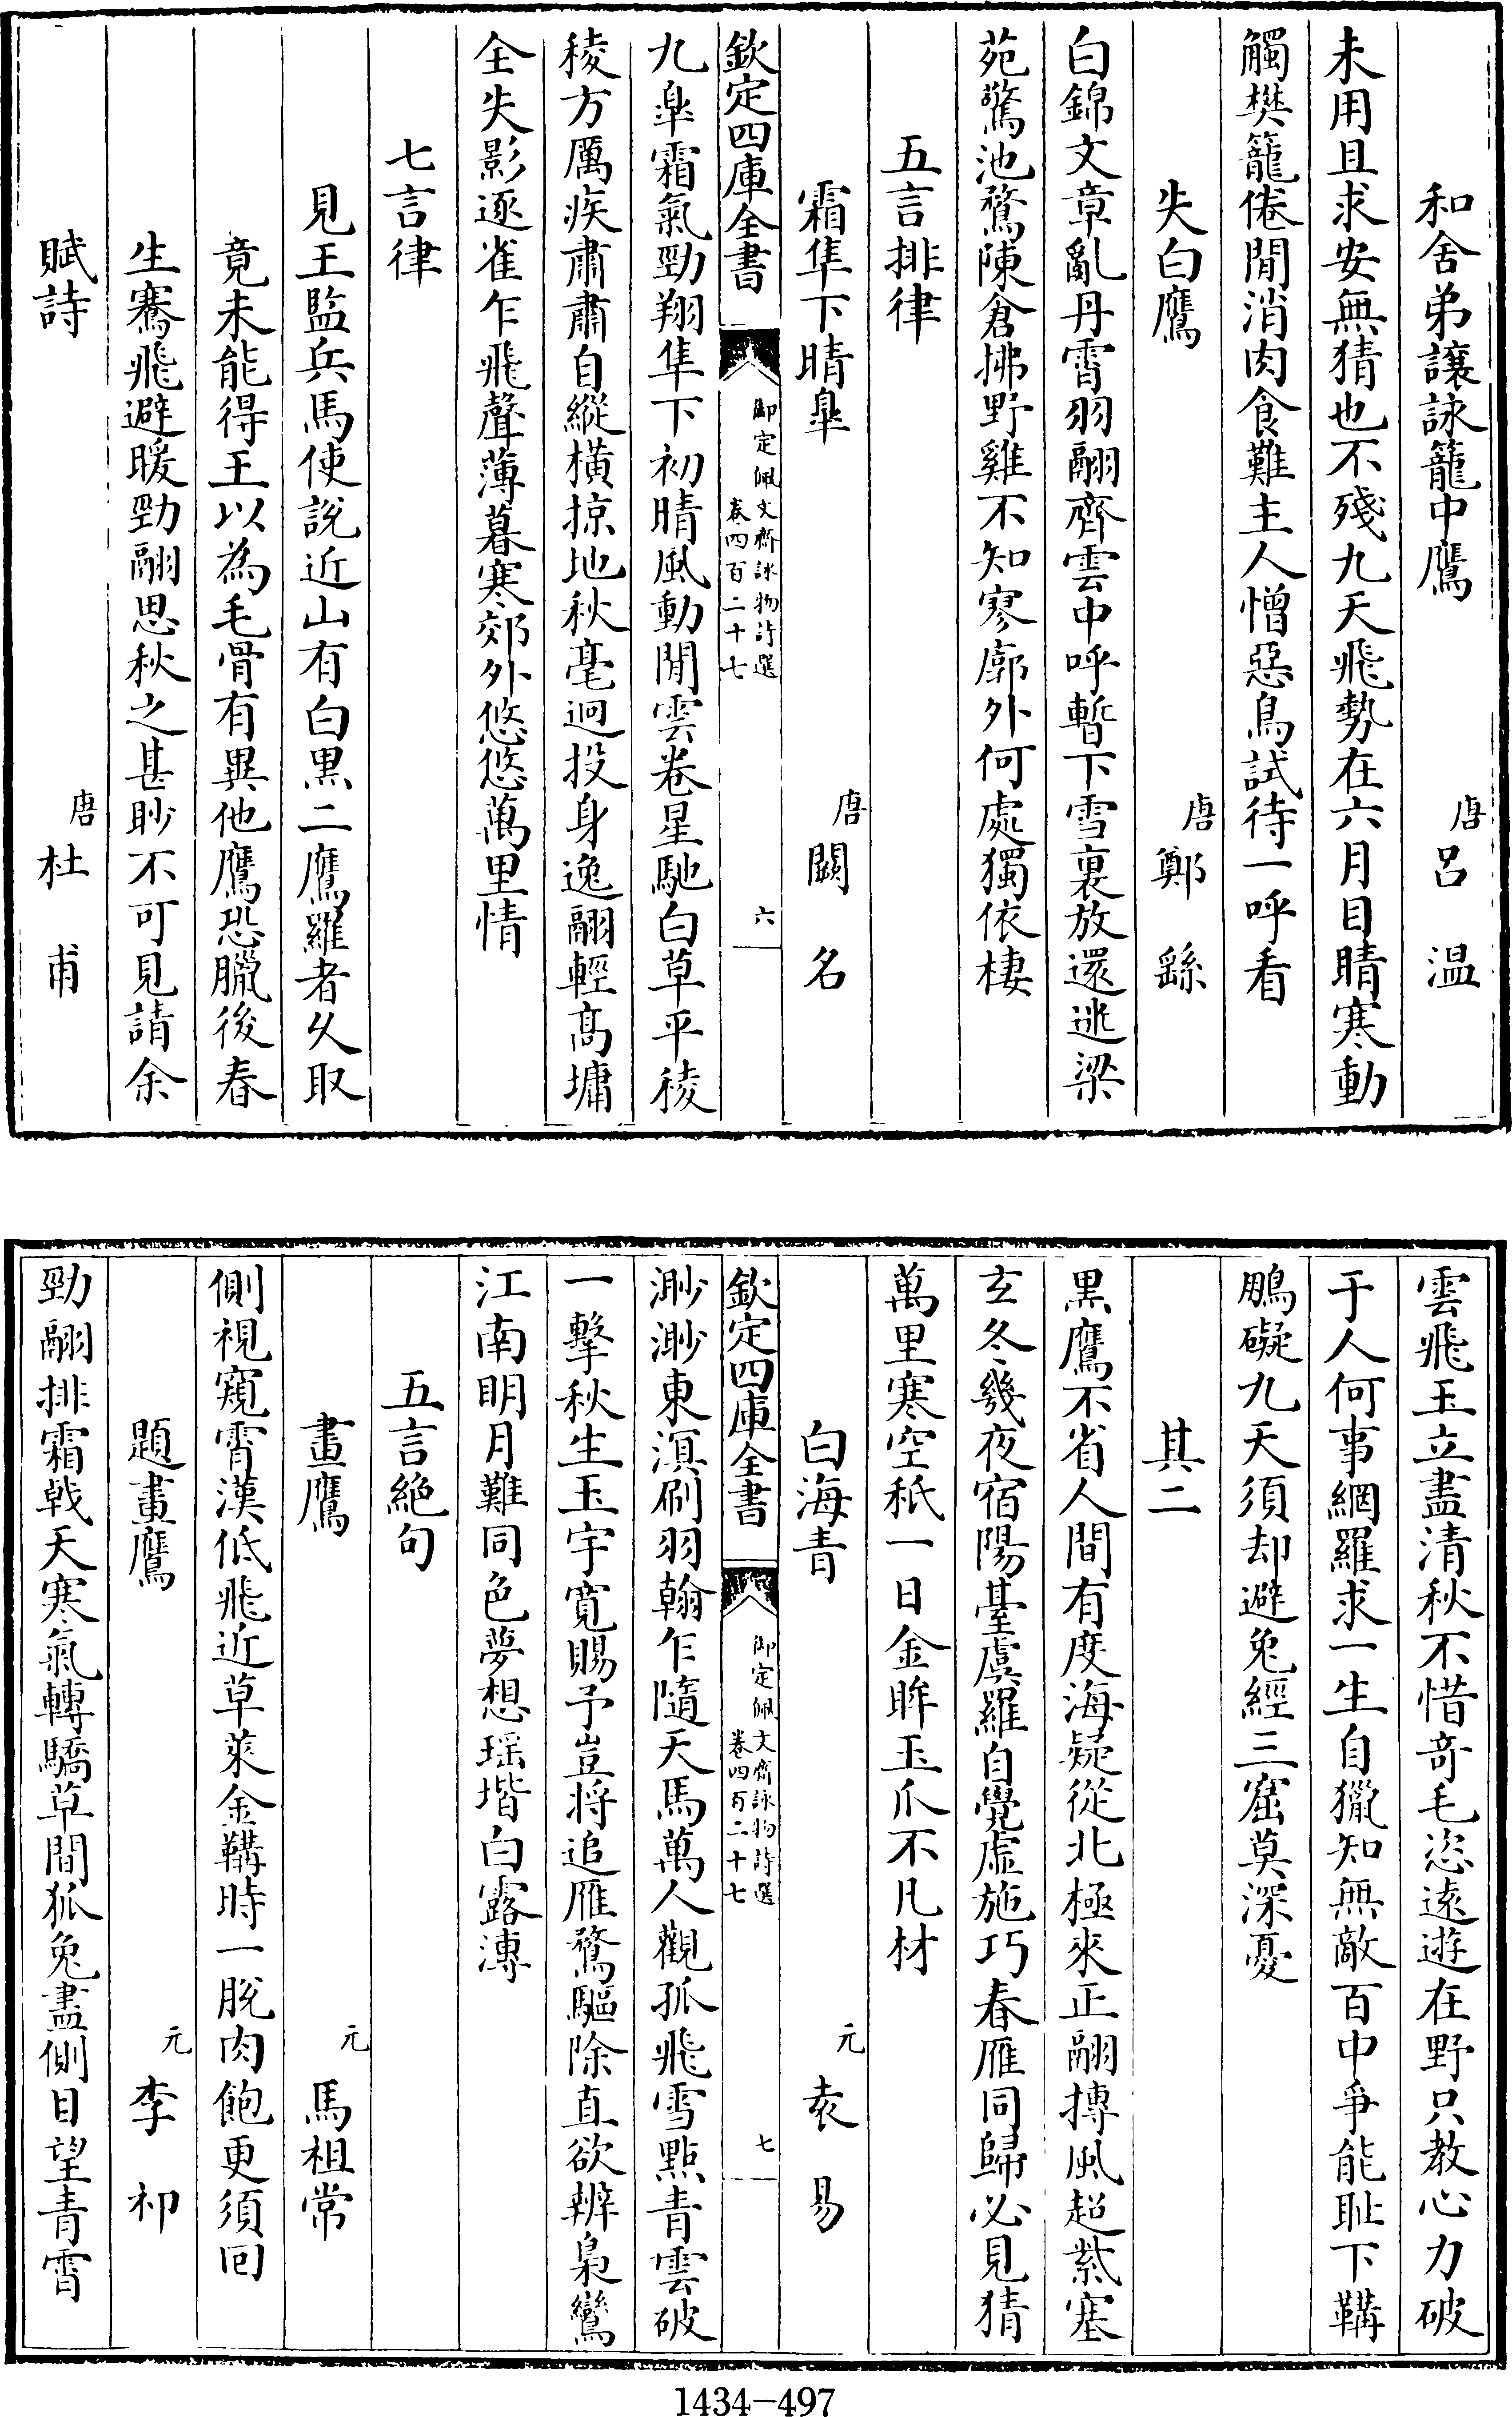 和舍弟讓詠籠中鷹　唐呂温
未用且求安無猜也不殘九天飛勢在六月目睛寒動
觸樊籠倦閒消肉食難主人憎惡鳥試待一呼看
失白鷹　唐鄭繇
白錦文章亂丹霄羽翮齊雲中呼暫下雪裏放還迷梁
苑驚池鶩陳倉拂野雞不知寥廓外何處獨依棲
五言排律
霜隼下晴臯　唐闕名
欽定四庫全書　御定佩文齋詠物詩選　卷四百二十七　六
九臯霜氣勁翔隼下初晴風動閒雲卷星馳白草平稜
稜方厲疾肅肅自縱橫掠地秋毫迥投身逸翮輕髙墉
全失影逐雀乍飛聲薄暮寒郊外悠悠萬里情
七言律
見王監兵馬使說近山有白黒二鷹羅者乆取
竟未能得王以為毛骨有異他鷹恐臘後春
生騫飛避暖勁翮思秋之甚眇不可見請余
賦詩　唐杜甫
雲飛玉立盡清秋不惜竒毛恣逺遊在野只教心力破
于人何事網羅求一生自獵知無敵百中爭能耻下鞲
鵬礙九天須却避兔經三窟莫深憂
其二
黒鷹不省人間有度海疑從北極來正翮摶風超紫塞
玄冬幾夜宿陽臺虞羅自覺虛施巧春雁同歸必見猜
萬里寒空秖一日金眸玉爪不凡材
白海青　元袁易
欽定四庫全書　御定佩文齋詠物詩選　卷四百二十七　七
渺渺東溟刷羽翰乍隨天馬萬人觀孤飛雪點青雲破
一擊秋生玉宇寛賜予豈將追雁鶩驅除直欲辨梟鸞
江南明月難同色夢想瑶堦白露漙
五言絶句
畫鷹　元馬祖常
側視窺霄漢低飛近草萊金鞲時一脫肉飽更須回
題畫鷹　元李祁
勁翮排霜戟天寒氣轉驕草間狐兔盡側目望青霄
1434-497